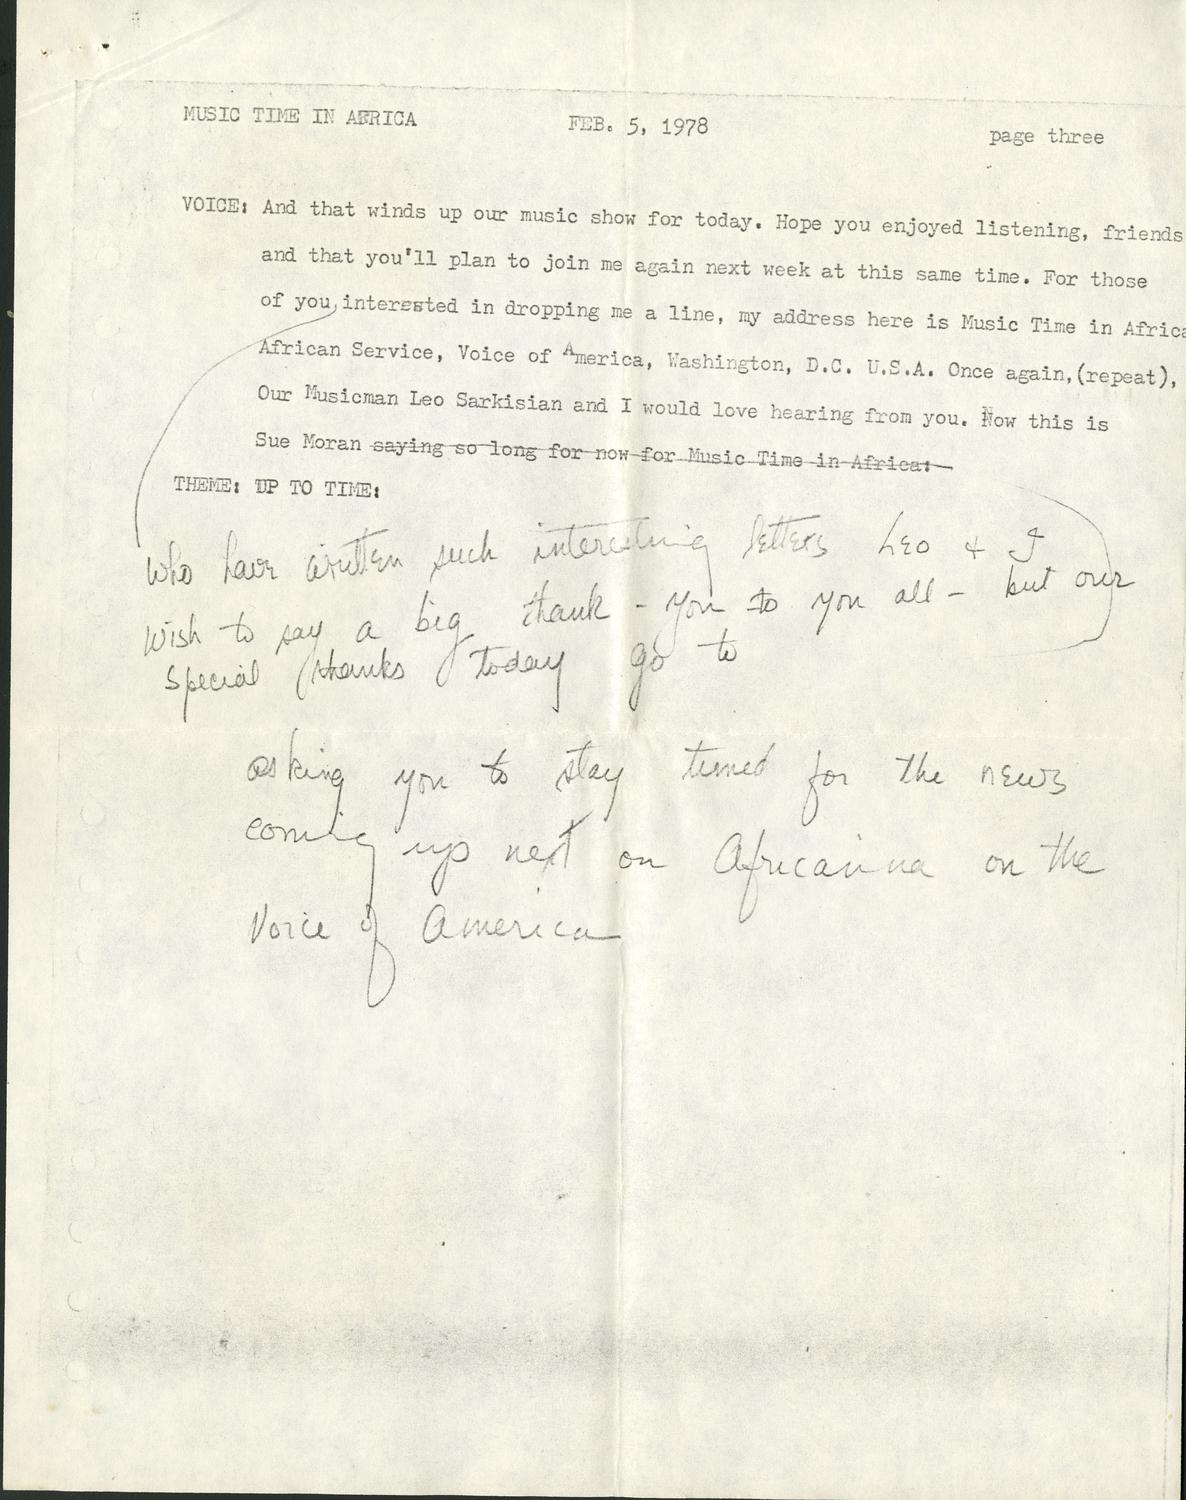 MUSIC TIME IN AFRICA FEB. 5, 1978 page three
VOICE: And that winds up our music show for today. Hope you enjoyed listening, friends
and that you'll plan to join me again next week at this same time. For those
of you interested in dropping me a line, my address here is Music Time in Africa
African Service, Voice of America, Washington, D.C. U.S.A. Once again,(repeat),
Our Musicman Leo Sarkisian and I would love hearing from you. Now this is
Sue Moran saying so long for now for Music Time in Africa:
THEME: UP TO TIME:
Who have written such interesting letters Leo + I
Wish to say a big thank - you to you all - but our
Special thanks today go to
asking you to stay tuned for the news
coming up next on Africana on the
Voice of America